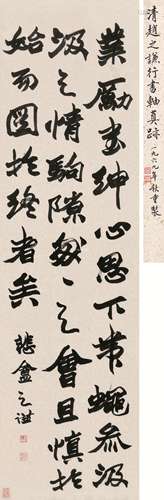 清趙之謙行書軸真跡
一九六九年秋重裝
業勵書紳心思下帶蠅參汲
汲之情駒隙之會且慎於
始而圖於終者矣
悲盦之謙